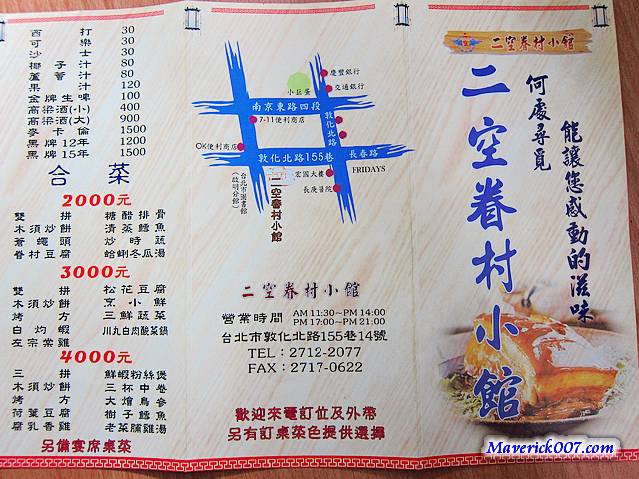 西打 30
可樂 30
沙士 30
椰子汁 80
蘆薈汁 80
果汁 120
金牌生啤 100
高梁酒(小) 400
高梁酒(大) 900
麥卡倫 1500
黑牌12年 1200
黑牌15年 1500
合菜
2000元
雙拼 糖醋排骨
木須炒餅 清蒸鱈魚
蒼蠅頭 炒時蔬
眷村豆腐 蛤蜊冬瓜湯
3000元
雙拼 松花豆腐
木須炒餅 京小鮮
烤方 三鮮蔬菜
白灼蝦 川丸白肉酸菜鍋
左宗棠雞
4000元
三拼 鮮蝦粉絲煲
木須炒餅 三杯中卷
烤方 大燴烏參
荷葉豆腐 樹子鱈魚
腐乳香雞 老菜脯雞湯
另備宴席桌菜
小巨蛋
慶豐銀行
交通銀行
南京東路四段
7-11便利商店
敦化北路
OK便利商店
敦化北路155巷
長春路
FRIDAYS
宏國大樓
長庚醫院
台北市圖書館
(啟明分館)
二空眷村小館
二空眷村小館
營業時間 AM 11:30~PM 14:00
PM 17:00~PM 21:00
台北市敦化北路155巷14號
TEL:2712-2077
FAX:2717-0622
歡迎來電訂位及外帶
另有訂桌菜色提供選擇
二空眷村小館
何處尋覓
能讓您感動的滋味
二空眷村小館
Maverick007.com